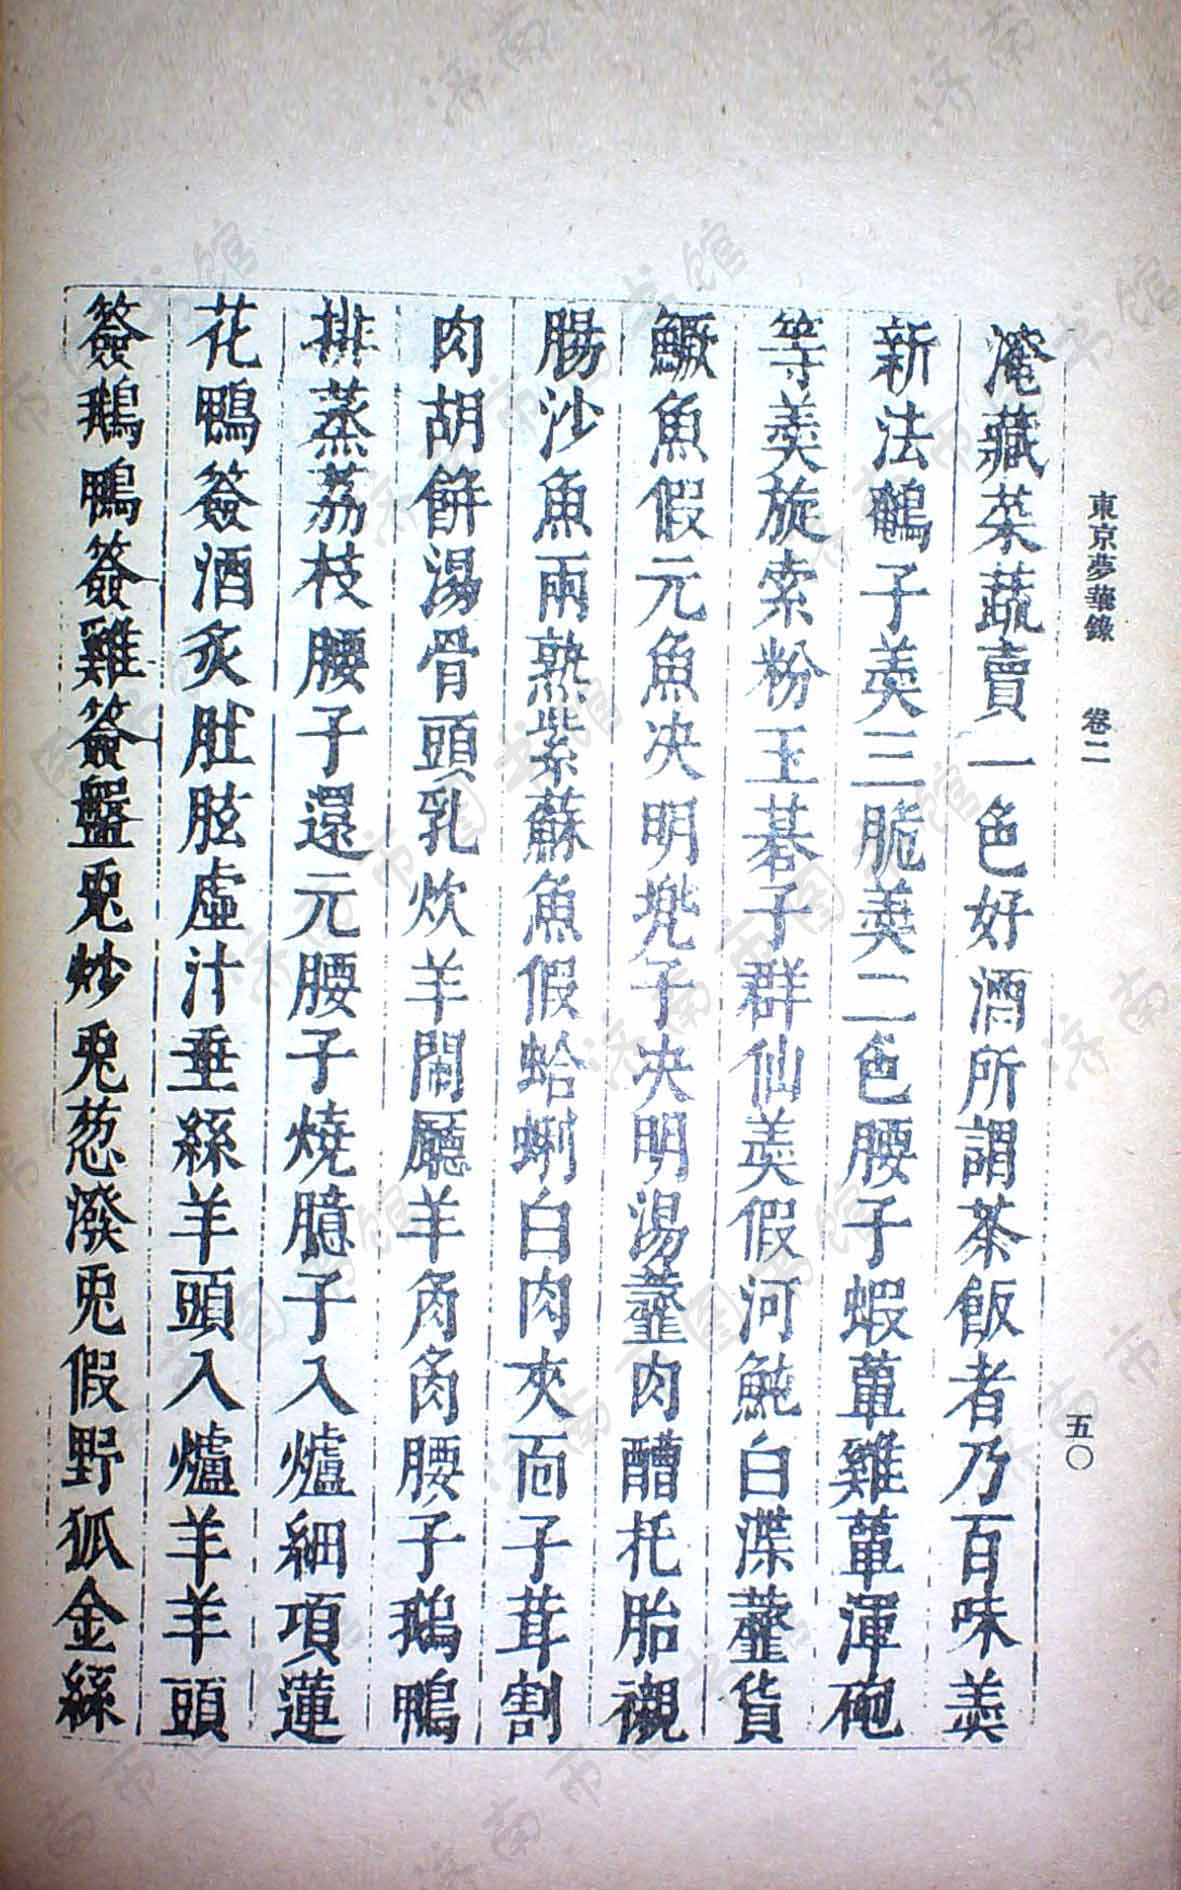 東京夢華錄　卷二　五〇
淹藏菜蔬賣一色好酒所謂茶飯者乃百味羹
新法鵪子羹三脆羹二色腰子蝦蕈雞蕈渾砲
等羹旋索粉玉碁子群仙羹假河魨白渫虀貨
鱖魚假元魚决明兠子决明湯虀肉醋托胎襯
腸沙魚兩熟紫蘇魚假蛤蜊白肉夾面子茸割
肉胡餅湯骨頭乳炊羊閙廳羊角肉腰子鵝鴨
排蒸荔枝腰子還元腰子燒臆子入爐細項蓮
花鴨簽酒炙肚胘虛汁垂絲羊頭入爐羊羊頭
簽鵝鴨簽雞簽盤兎炒兎葱潑兎假野狐金絲
济南市图书馆